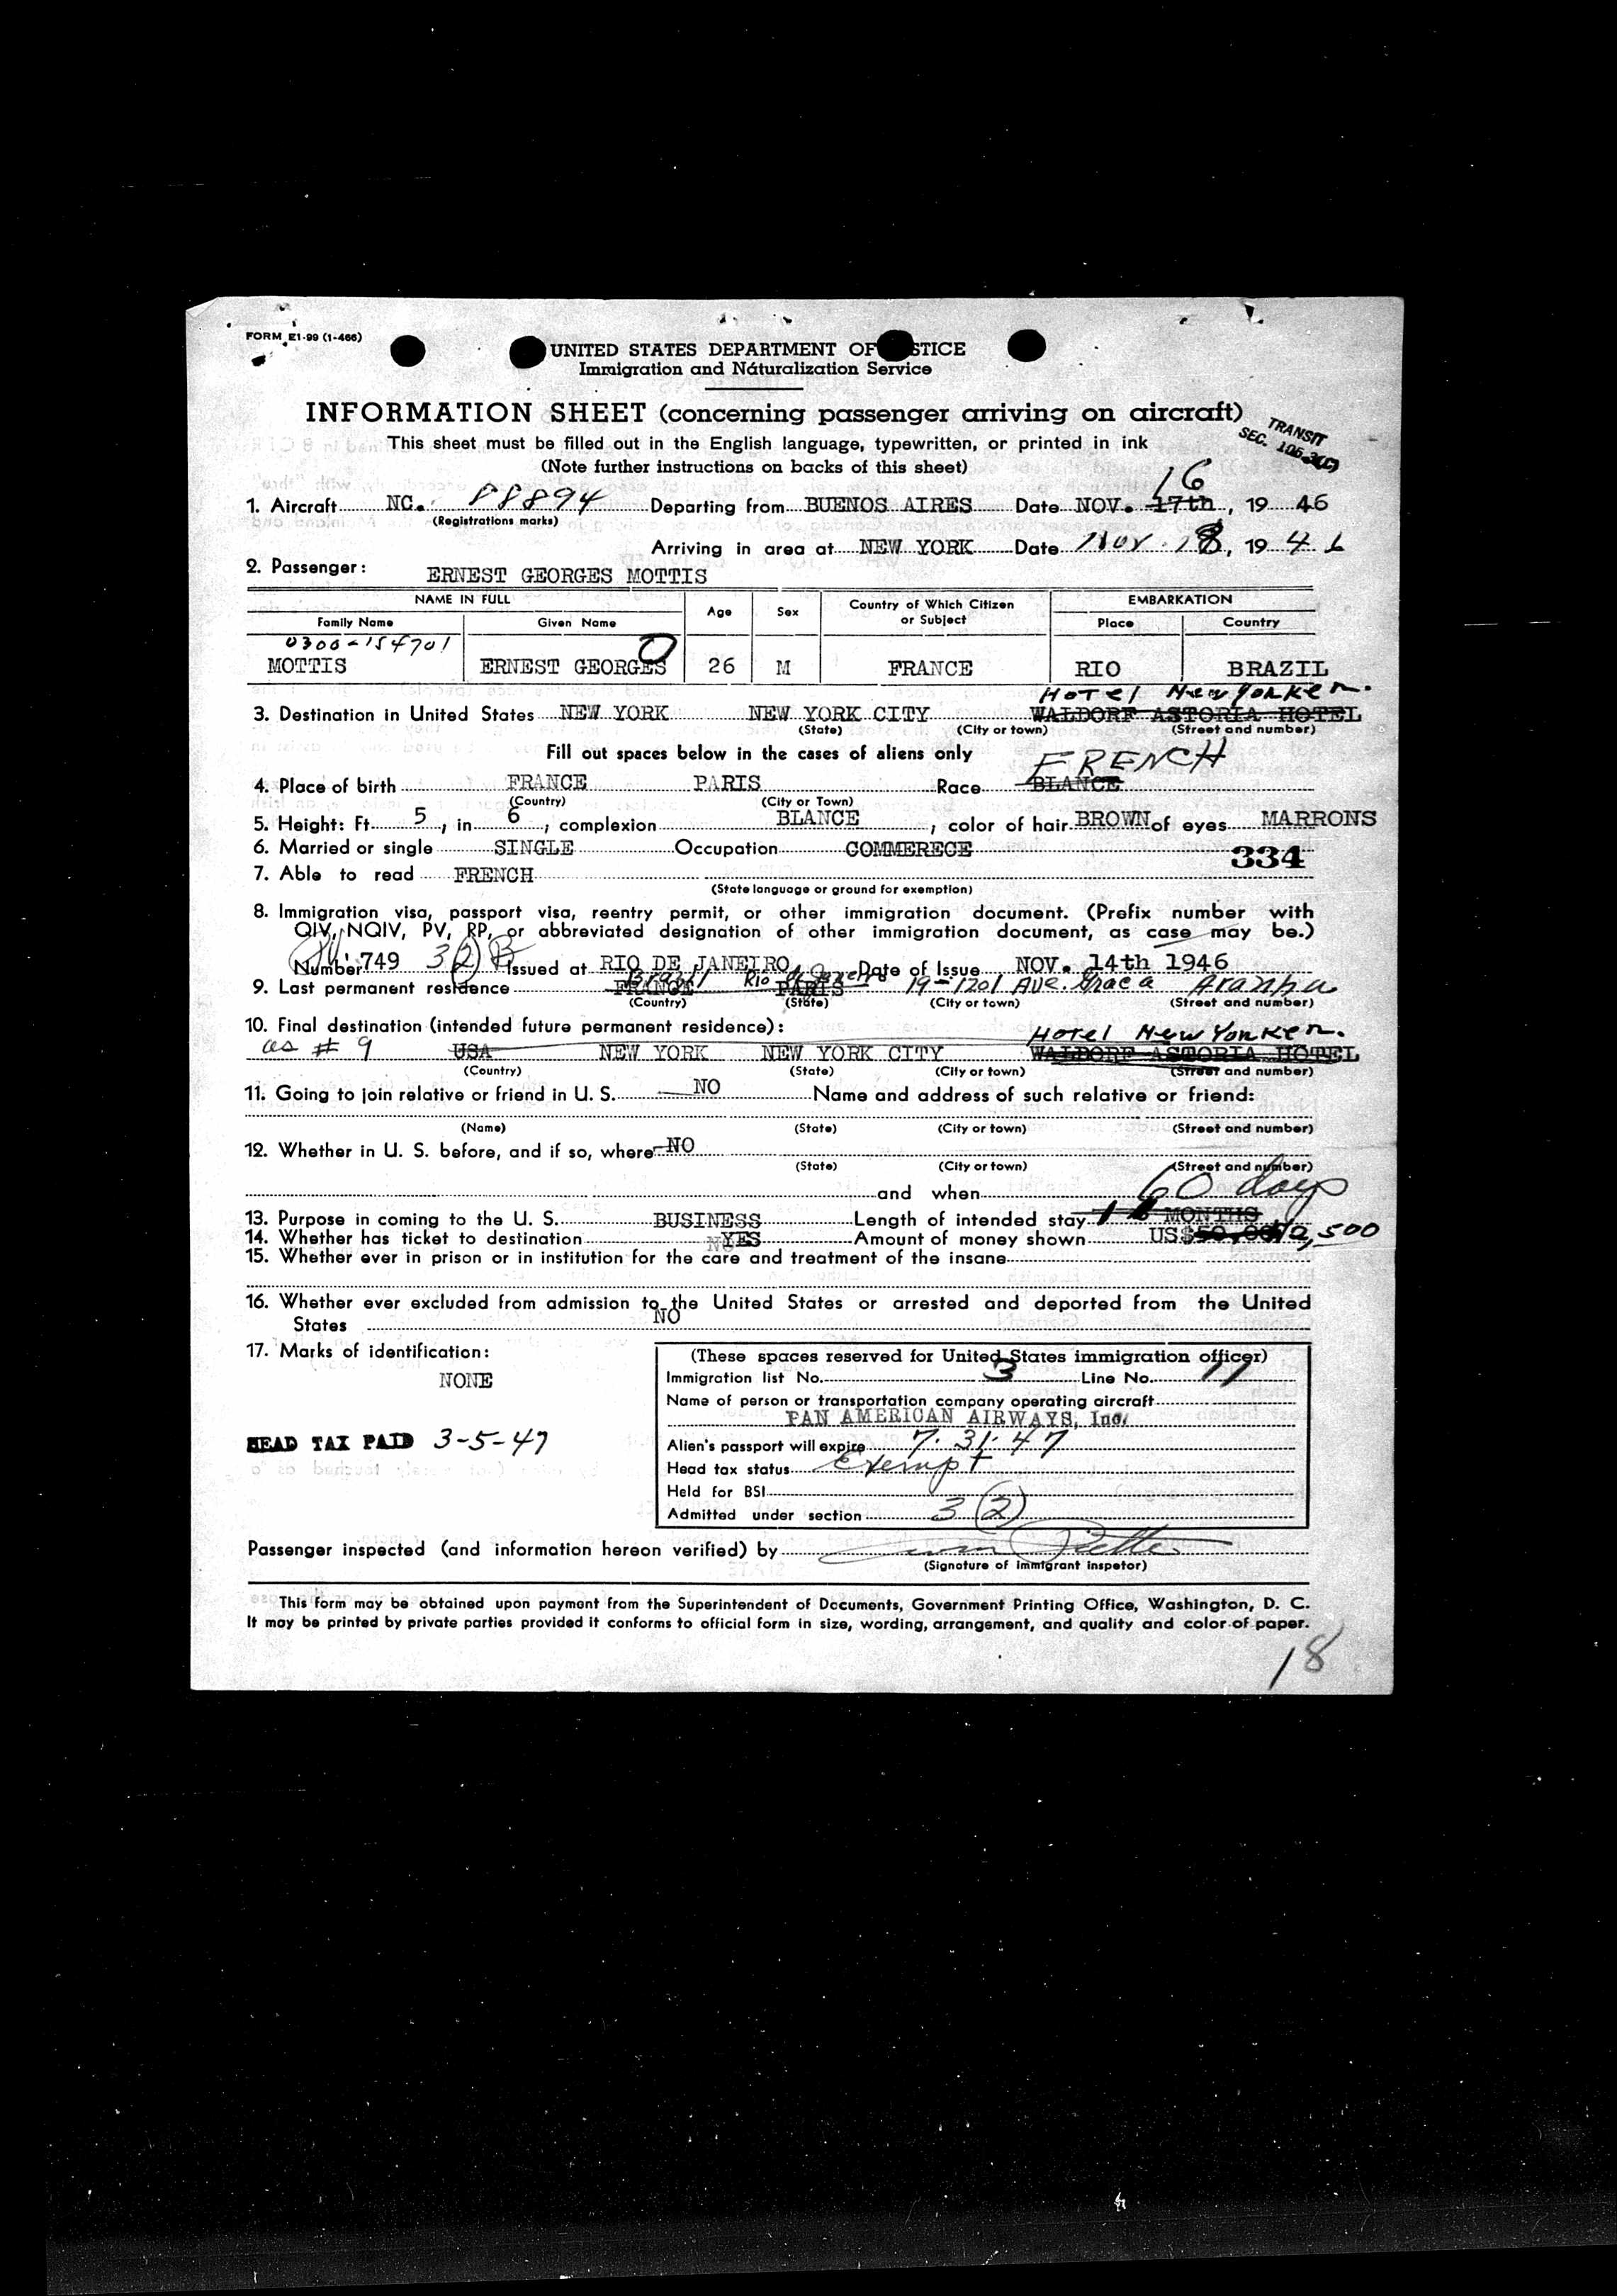 FORM E1-99 (1-466)
UNITED STATES DEPARTMENT OF STICE
Immigration and Naturalization Service
INFORMATION SHEET (concerning passenger arriving on aircraft)
TRANSIT
SEC. 106.3(C)
This sheet must be filled out in the English language, typewritten, or printed in ink
(Note further instructions on backs of this sheet)
16
1. Aircraft NC. 88894 Departing from BUENOS AIRES Date NOV. 17th, 19 46
(Registrations marks)
Arriving in area at NEW YORK Date Nov. 18, 19 46
2. Passenger: ERNEST GEORGES MOTTIS
NAME IN FULL Age Sex Country of Which Citizen or Subject EMBARKATION
Family Name Given Name Place Country
0300-154701 0
MOTTIS ERNEST GEORGES 26 M FRANCE RIO BRAZIL
Hotel New Yorker.
3. Destination in United States NEW YORK NEW YORK CITY WALDORF ASTORIA HOTEL
(State) (City or town) (Street and number)
Fill out spaces below in the cases of aliens only
FRENCH
4. Place of birth FRANCE PARIS Race BLANCE
(Country) (City or Town)
5. Height: Ft. 5, in. 6, complexion BLANCE, color of hair BROWN of eyes MARRONS
6. Married or single SINGLE Occupation COMMERECE 334
7. Able to read FRENCH
(State language or ground for exemption)
8. Immigration visa, passport visa, reentry permit, or other immigration document. (Prefix number with
QIV, NQIV, PV, RP, or abbreviated designation of other immigration document, as case may be.)
Number 749 3(2)B Issued at RIO DE JANEIRO Date of Issue NOV. 14th 1946
Brazil Rio de Janeiro 19-1201 Ave. Graca Aranha
9. Last permanent residence FRANCE PARIS
(Country) (State) (City or town) (Street and number)
10. Final destination (intended future permanent residence):
Hotel New Yorker.
as # 9 USA NEW YORK NEW YORK CITY WALDORF ASTORIA HOTEL
(Country) (State) (City or town) (Street and number)
11. Going to join relative or friend in U. S. NO Name and address of such relative or friend:
(Name) (State) (City or town) (Street and number)
12. Whether in U. S. before, and if so, where NO
(State) (City or town) (Street and number)
and when
60 days
13. Purpose in coming to the U. S. BUSINESS Length of intended stay MONTHS
14. Whether has ticket to destination YES Amount of money shown US$50.00 2,500
15. Whether ever in prison or in institution for the care and treatment of the insane NO
16. Whether ever excluded from admission to the United States or arrested and deported from the United
States NO
17. Marks of identification:
NONE
HEAD TAX PAID 3-5-47
(These spaces reserved for United States immigration officer)
Immigration list No. 3 Line No. 17
Name of person or transportation company operating aircraft
PAN AMERICAN AIRWAYS, Inc.
Alien's passport will expire 7.31.47
Head tax status Exempt
Held for BSI
Admitted under section 3(2)
Passenger inspected (and information hereon verified) by
(Signature of immigrant inspetor)
This form may be obtained upon payment from the Superintendent of Documents, Government Printing Office, Washington, D. C.
It may be printed by private parties provided it conforms to official form in size, wording, arrangement, and quality and color of paper.
18